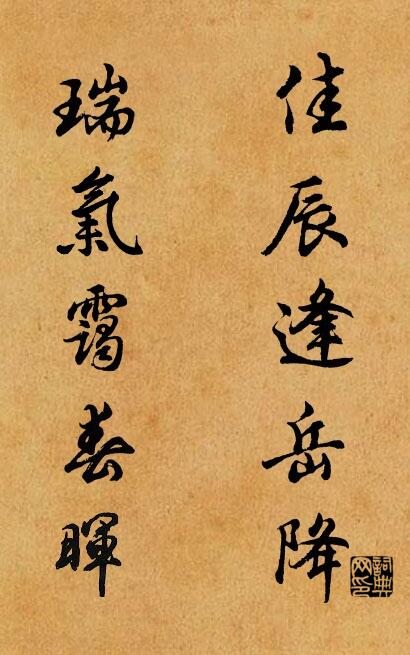 佳辰逢岳降
瑞氣靄春暉
詞典网印